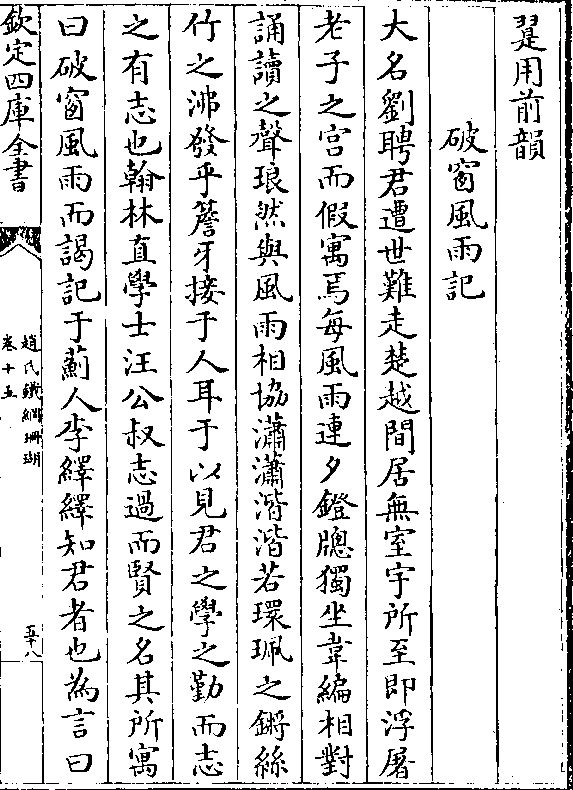 㫷用前韻
破窗風雨記
大名劉聘君遭世難走楚越間居無室宇所至即浮屠
老子之宮而假寓焉每風雨連夕鐙牕獨坐韋編相對
誦讀之聲琅然與風雨相協瀟瀟湝湝若環珮之鏘絲
竹之沸發乎簷牙接于人耳于以見君之學之勤而志
之有志也翰林直學士汪公叔志過而賢之名其所寓
曰破窗風雨而謁記于薊人李繹繹知君者也為言曰
欽定四庫全書
趙氏鐵網珊瑚
卷十五
五十八